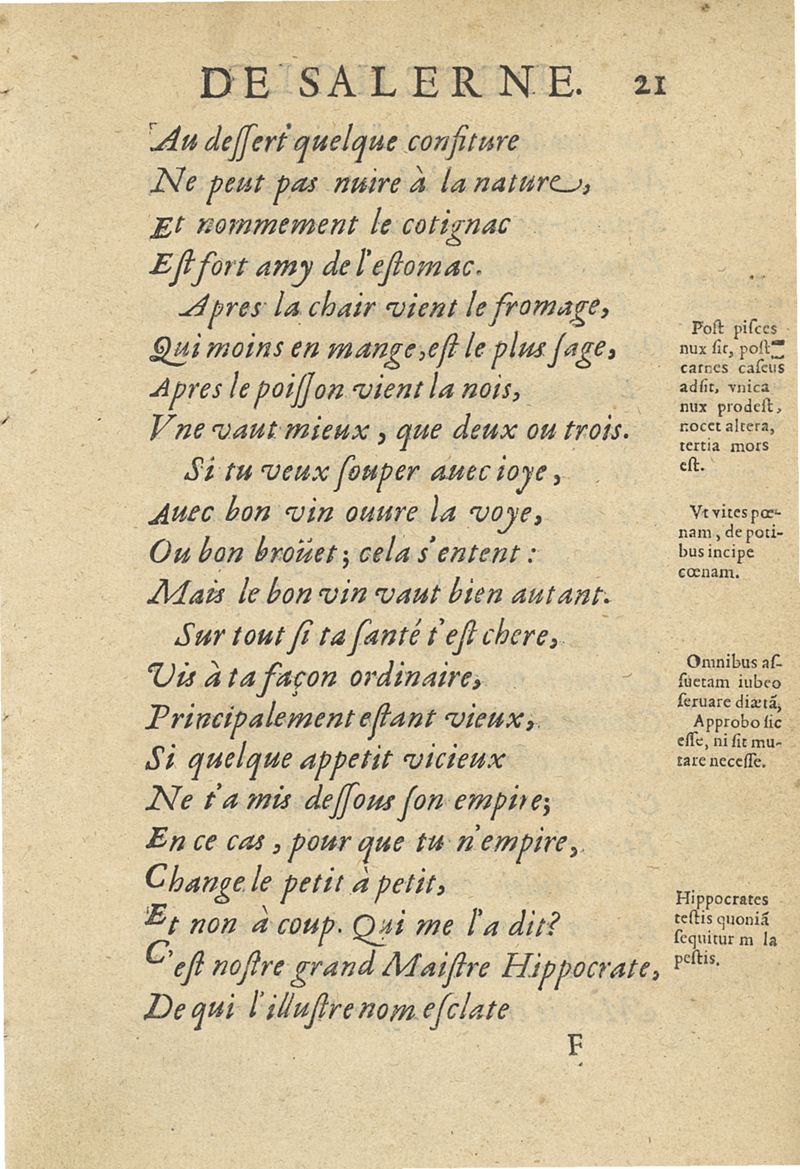 DE SALERNE. 21
Au deſſert quelque confiture
Ne peut pas nuire à la nature,
Et nommement le cotignac
Eſt fort amy de l'eſtomac.
Apres la chair vient le fromage,
Qui moins en mange, eſt le plus ſage,
Apres le poiſſon vient la nois,
Vne vaut mieux, que deux ou trois.
Si tu veux ſouper auec ioye,
Auec bon vin ouure la voye,
Ou bon broüet; cela s'entent:
Mais le bon vin vaut bien autant.
Sur tout ſi ta ſanté t'eſt chere,
Vis à ta façon ordinaire,
Principalement eſtant vieux,
Si quelque appetit vicieux
Ne t'a mis deſſous ſon empire;
En ce cas, pour que tu n'empire,
Change le petit à petit,
Et non à coup. Qui me l'a dit?
C'eſt noſtre grand Maiſtre Hippocrate,
De qui l'illuſtre nom eſclate
F
Poſt piſces
nux ſit, poſt
carnes caſeus
adſit, vnica
nux prodeſt,
nocet altera,
tertia mors
eſt.
Vt vites pœ-
nam, de poti-
bus incipe
cœnam.
Omnibus aſ-
ſuetam iubeo
ſeruare diætã,
Approbo ſic
eſſe, ni ſit mu-
tare neceſſe.
Hippocrates
teſtis quoniã
ſequitur m la
peſtis.